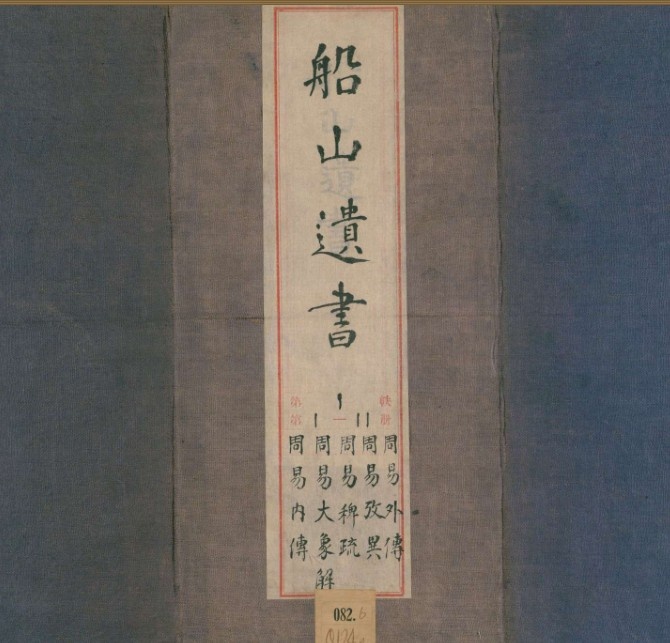 船山遺書
周易外傳
周易攷異
周易稗疏
周易大象解
周易內傳
082.6